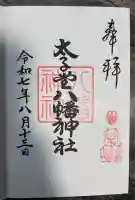 奉拝
太子堂八幡神社
令和七年八月十三日